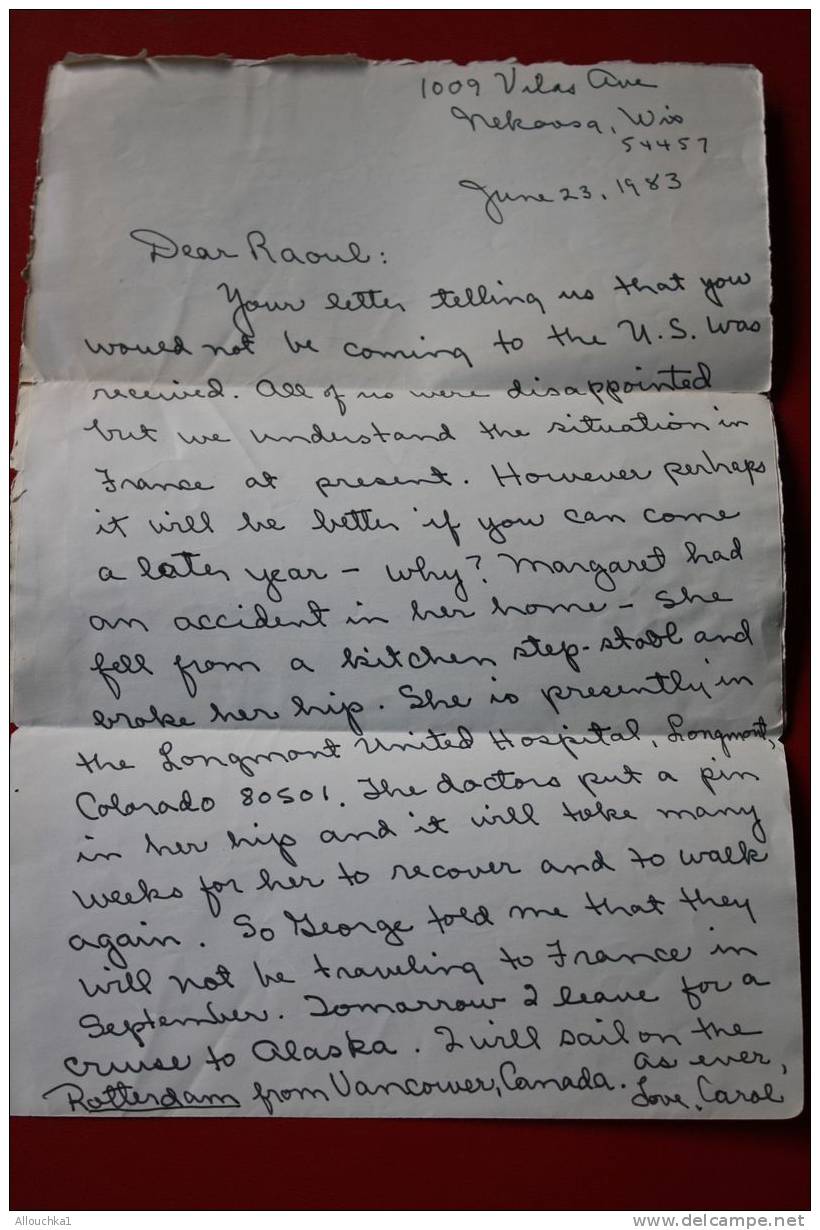 1009 Vilas Ave
Nekoosa, Wis
54457
June 23, 1983
Dear Raoul:
Your letter telling us that you
would not be coming to the U.S. was
received. All of us were disappointed
but we understand the situation in
France at present. However perhaps
it will be better if you can come
a later year - why? Margaret had
an accident in her home - she
fell from a kitchen step-stool and
broke her hip. She is presently in
the Longmont United Hospital, Longmont,
Colorado 80501. The doctors put a pin
in her hip and it will take many
weeks for her to recover and to walk
again. So George told me that they
will not be traveling to France in
September. Tomorrow I leave for a
cruise to Alaska. I will sail on the
Rotterdam from Vancouver, Canada. as ever,
Love, Carol
Allouchka1
www.delcampe.net